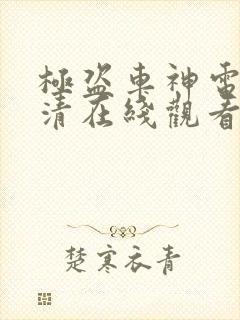 極盜車神電
清在綫觀看
楚寒衣青